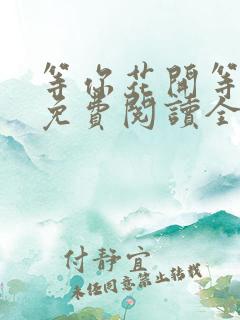 等你花開等
免費閱讀全
付靜宜
未经同意禁止转载